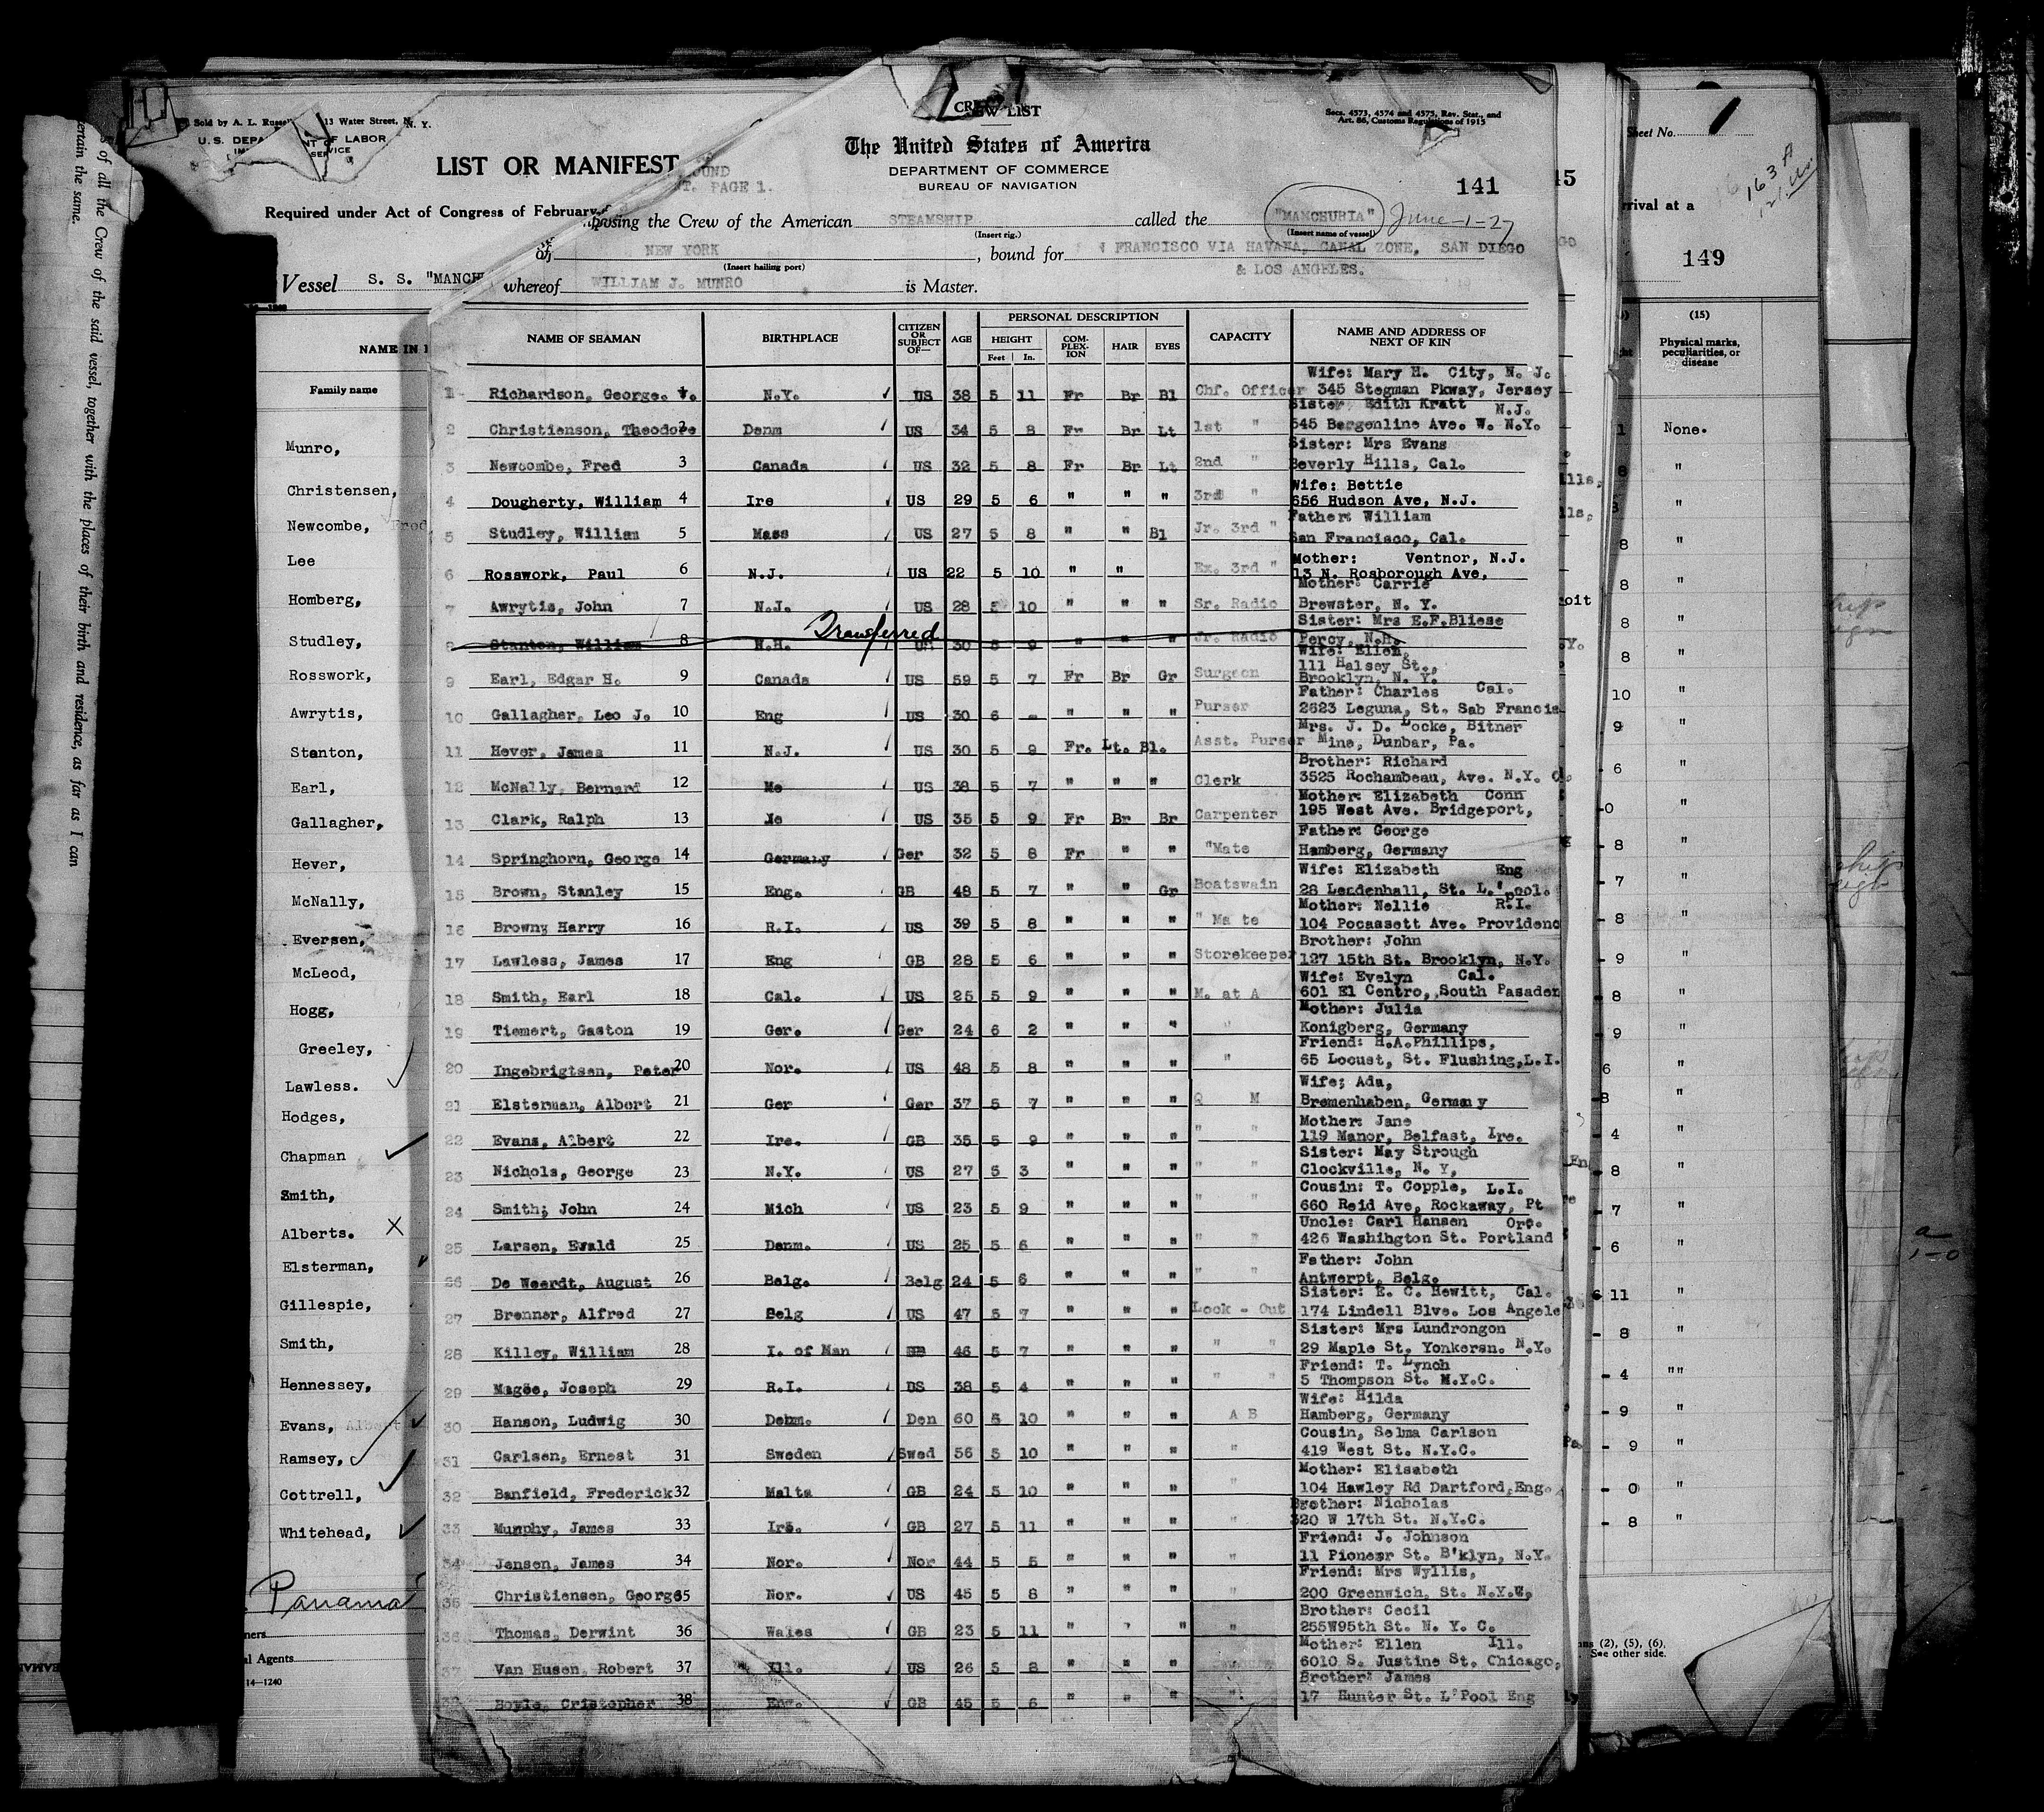 Sold by A. L. Russell 13 Water Street, N. Y.
U.S. DEPA NT OF LABOR
IM SERVICE
LIST OR MANIFEST
OUND
T. PAGE 1.
Required under Act of Congress of February
Vessel S. S. "MANCH
NAME IN
Family name
Munro,
Christensen,
Newcombe, Fred
Lee
Homberg,
Studley,
Rosswork,
Awrytis,
Stanton,
Earl,
Gallagher,
Hever,
McNally,
Eversen,
McLeod,
Hogg,
Greeley,
Lawless.
Hodges,
Chapman
Smith,
Alberts. X
Elsterman,
Gillespie,
Smith,
Hennessey,
Evans, Albert
Ramsey,
Cottrell,
Whitehead,
Panama
ners
l Agents
14—1240
s of all the Crew of the said vessel, together with the places of their birth and residence, as far as I can
ertain the same.
CREW LIST
Secs. 4573, 4574 and 4575, Rev. Stat., and
Art. 86, Customs Regulations of 1915
The United States of America
DEPARTMENT OF COMMERCE
BUREAU OF NAVIGATION
141
posing the Crew of the American STEAMSHIP called the "MANCHURIA" June-1-27
(Insert rig.) (Insert name of vessel)
of NEW YORK, bound for N FRANCISCO VIA HAVANA, CANAL ZONE, SAN DIEGO
(Insert hailing port) & LOS ANGELES.
whereof WILLIAM J. MUNRO is Master.
NAME OF SEAMAN BIRTHPLACE CITIZEN OR SUBJECT OF— AGE PERSONAL DESCRIPTION HEIGHT Feet In. COM-PLEX-ION HAIR EYES CAPACITY NAME AND ADDRESS OF NEXT OF KIN
Wife: Mary H. City, N. J.
1 Richardson, George. V. N.Y. US 38 5 11 Fr Br Bl Chf. Officer 345 Stegman Pkway, Jersey
Sister Edith Kratt N.J.
2 Christienson, Theodore 2 Denm US 34 5 8 Fr Br Lt 1st " 545 Bergenline Ave. W. N.Y.
Sister: Mrs Evans
3 Newcombe, Fred 3 Canada US 32 5 8 Fr Br Lt 2nd " Beverly Hills, Cal.
Wife: Bettie
4 Dougherty, William 4 Ire US 29 5 6 " " " 3rd " 656 Hudson Ave, N.J.
Father: William
5 Studley, William 5 Mass US 27 5 8 " " Bl Jr. 3rd " San Francisco, Cal.
Mother: Ventnor, N.J.
6 Rosswork, Paul 6 N.J. US 22 5 10 " " Ex. 3rd " 13 N. Rosborough Ave,
Mother: Carrie
7 Awrytis, John 7 N.J. US 28 5 10 " " " Sr. Radio Brewster, N. Y.
Transferred
Sister: Mrs E.F.Bliese
8 Stanton, William 8 N.H. US 30 5 9 " " " Jr. Radio Percy, N.H.
Wife: Ellen,
111 Halsey St.,
9 Earl, Edgar H. 9 Canada US 59 5 7 Fr Br Gr Surgeon Brooklyn, N. Y.
Father: Charles Cal.
10 Gallagher, Leo J. 10 Eng US 30 6 - " " " Purser 2623 Leguna, St. Sab Francis
Mrs. J. D. Locke, Bitner
11 Hever, James 11 N.J. US 30 5 9 Fr. Lt. Bl. Asst. Purser Mine, Dunbar, Pa.
Brother: Richard
12 McNally, Bernard 12 Me US 38 5 7 " " " Clerk 3523 Rochambeau, Ave. N.Y. C.
Mother: Elizabeth Conn
13 Clark, Ralph 13 US 35 5 9 Fr Br Br Carpenter 195 West Ave. Bridgeport,
Father: George
14 Springhorn, George 14 Germany Ger 32 5 8 Fr " " "Mate Hamberg, Germany
Wife: Elizabeth Eng
15 Brown, Stanley 15 Eng. GB 48 5 7 " " Gr Boatswain 28 Leadenhall, St. L.'pool.
Mother: Nellie R.I.
16 Brown; Harry 16 R.I. US 39 5 8 " " " " Mate 104 Pocassett Ave. Providenc
Brother: John
17 Lawless, James 17 Eng GB 28 5 6 " " " Storekeeper 127 15th St. Brooklyn, N.Y.
Wife: Evelyn Cal.
18 Smith, Earl 18 Cal. US 25 5 9 " " " M. at A 601 El Centro, South Pasaden
Mother: Julia
19 Tiemert, Gaston 19 Ger. Ger 24 6 2 " " " " Konigberg, Germany
Friend: H.A.Phillips,
20 Ingebrigtsen, Peter 20 Nor. US 48 5 8 " " " " 65 Locust, St. Flushing,L.I.
Wife; Ada,
21 Elsterman, Albert 21 Ger Ger 37 5 7 " " " Q M Bremenhaben, Germany
Mother: Jane
22 Evans, Albert 22 Ire. GB 35 5 9 " " " " " 119 Manor, Belfast, Ire.
Sister: May Strough
23 Nichols, George 23 N.Y. US 27 5 3 " " " " " Clockville, N. Y,
Cousin: T. Copple, L.I.
24 Smith; John 24 Mich US 23 5 9 " " " " " 660 Reid Ave, Rockaway, Pt
Uncle: Carl Hansen Ore.
25 Larsen, Evald 25 Denm. US 25 5 6 " " " " " 426 Washihgton St. Portland
Father: John
26 De Weerdt, August 26 Belg. Belg 24 5 6 " " " " " Antwerpt, Belg.
Sister: E. C. Hewitt, Cal.
27 Brenner, Alfred 27 Belg US 47 5 7 " " " Look - Out 174 Lindell Blve. Los Angele
Sister: Mrs Lundrongon
28 Killey, William 28 I. of Man 46 5 7 " " " " " 29 Maple St, Yonkersn. N.Y.
Friend: T. Lynch
29 Magee, Joseph 29 R.I. US 38 5 4 " " " " " 5 Thompson St. N.Y.C.
Wife: Hilda
30 Hanson, Ludwig 30 Denm. Den 60 5 10 " " " A B Hamberg, Germany
Cousin, Selma Carlson
31 Carlsen, Ernest 31 Sweden Swed 56 5 10 " " " " 419 West St. N.Y.C.
Mother: Elisabeth
32 Banfield, Frederick 32 Malta GB 24 5 10 " " " " 104 Hawley Rd Dartford,Eng.
Brother: Nicholas
33 Murphy, James 33 Ire. GB 27 5 11 " " " " 320 W 17th St. N.Y.C.
Friend: J. Johnson
34 Jensen, James 34 Nor. Nor 44 5 5 " " " " 11 Pioneer St. B'klyn, N.Y.
Friend: Mrs Wyllis,
35 Christiensen, George 35 Nor. US 45 5 8 " " " " 200 Greenwich, St. N.Y.C,
Brother: Cecil
36 Thomas, Derwint 36 Wales GB 23 5 11 " " " " 255W95th St. N. Y. C.
Mother: Ellen Ill.
37 Van Husen, Robert 37 Ill. US 26 5 8 " " " 6010 S. Justine St. Chicago,
Brother: James
38 Boyle, Cristopher 38 Eng. GB 45 5 6 " " " " 17 Hunter St. L'Pool Eng
Sheet No. 1
163 A
45
rrival at a
149
(15)
Physical marks, peculiarities, or disease
None.
ns (2), (5), (6).
See other side.